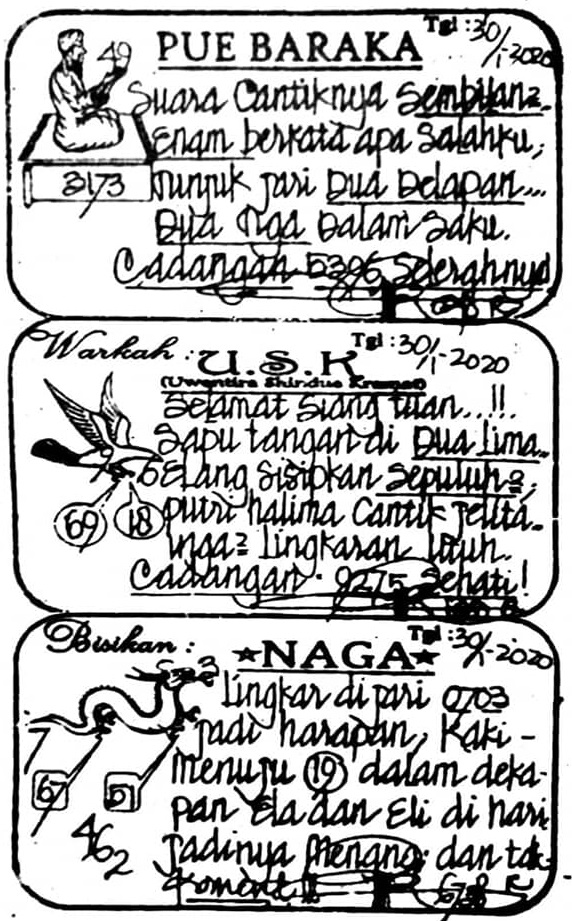 PUE BARAKA
Tgl : 30/1-2020
49
3173
Suara Cantiknya Sembilan2..
Enam berkata apa Salahku,
Tunjuk Jari Dua Delapan...
Dua Dalam Saku.
Cadangan 5396
Warkah :
U.S.K
Tgl : 30/1-2020
(Uwentira Shindue Kramat)
Selamat Siang tuan...!!.
Sapu tangan di Dua Lima..
Elang Sisipkan Sepuluh2,
69
18
putri halima Cantik Jelita..
Lingkaran
Cadangan : 9275 Sehati!
Bisikan :
NAGA
Tgl : 30/1-2020
Lingkar di jari 0703
jadi harapan, Kaki -
menuju 19 dalam deka-
6
5
pan Ela dan Eli di hari
462
Jadinya Menang dan tak
Koment